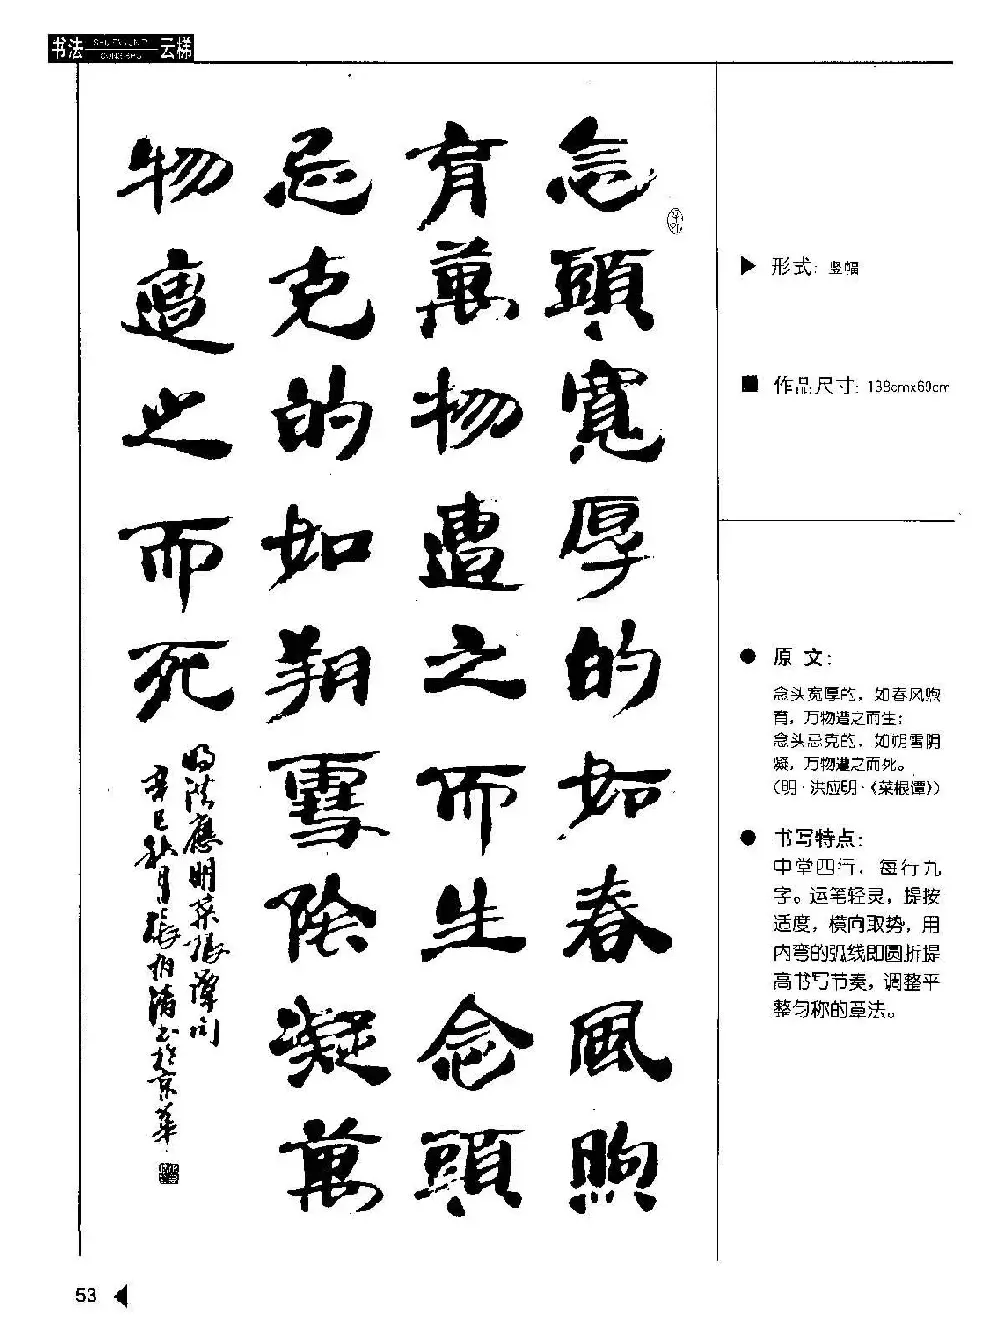 书法云梯
念頭寬厚的如春風煦
育萬物遭之而生念頭
忌克的如朔雪陰凝萬
物遭之而死
明洪應明菜根譚句
辛巳秋月張伯清书於京華
形式：竖幅
作品尺寸：138cmx69cm
原文：
念头宽厚的，如春风煦
育，万物遭之而生；
念头忌克的，如朔雪阴
凝，万物遭之而死。
（明·洪应明·《菜根谭》）
书写特点：
中堂四行，每行九
字。运笔轻灵，提按
适度，横向取势，用
内弯的弧线即圆折提
高书写节奏，调整平
整匀称的章法。
53